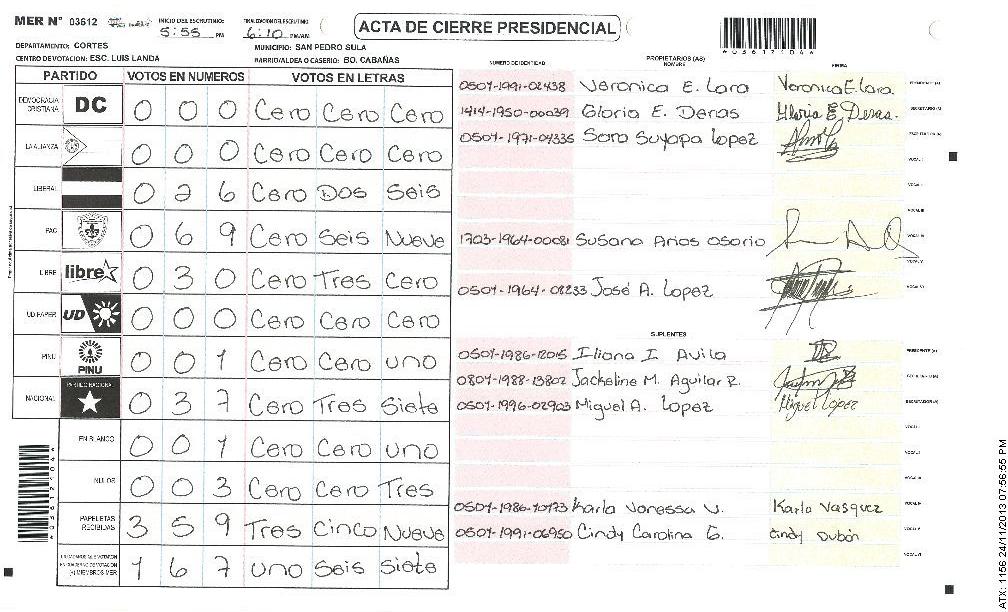 MER N° 03612
INICIO DEL ESCRUTINIO: 5:55 PM
FINALIZACION DEL ESCRUTINIO 6:10 PM/AM
ACTA DE CIERRE PRESIDENCIAL
DEPARTAMENTO: CORTES
MUNICIPIO: SAN PEDRO SULA
CENTRO DE VOTACION: ESC. LUIS LANDA
BARRIO/ALDEA O CASERIO: BO. CABAÑAS
PARTIDO VOTOS EN NUMEROS VOTOS EN LETRAS
DEMOCRACIA CRISTIANA DC 0 0 0 Cero Cero Cero
LA ALIANZA 0 0 0 Cero Cero Cero
LIBERAL 0 2 6 Cero Dos Seis
PAC 0 6 9 Cero Seis Nueve
LIBRE libre 0 3 0 Cero Tres Cero
UD FAPER UD 0 0 0 Cero Cero Cero
PINU PINU 0 0 1 Cero Cero uno
NACIONAL PARTIDO NACIONAL 0 3 7 Cero Tres Siete
EN BLANCO 0 0 1 Cero Cero uno
NULOS 0 0 3 Cero Cero Tres
PAPELETAS RECIBIDAS 3 5 9 Tres Cinco Nueve
1 6 7 uno Seis Siete
NUMERO DE IDENTIDAD PROPIETARIOS (AS) NOMBRE FIRMA
0501-1991-02438 Veronica E. Lara Veronica E. Lara.
1414-1950-00039 Gloria E. Deras Gloria E Deras.
0501-1971-04335 Sara Suyapa Lopez
1703-1964-00081 Susana Arios Osorio
0501-1964-08233 José A. Lopez
SUPLENTES
0501-1986-12015 Iliana I. Avila
0801-1988-13802 Jackeline M. Aguilar R.
0501-1996-02903 Miguel A. Lopez Miguel Lopez
0501-1986-10173 Karla Vanessa V. Karla Vasquez
0501-1991-06950 Cindy Carolina G. Cindy Dubón
ATX: 1156 24/11/2013 07:56:55 PM